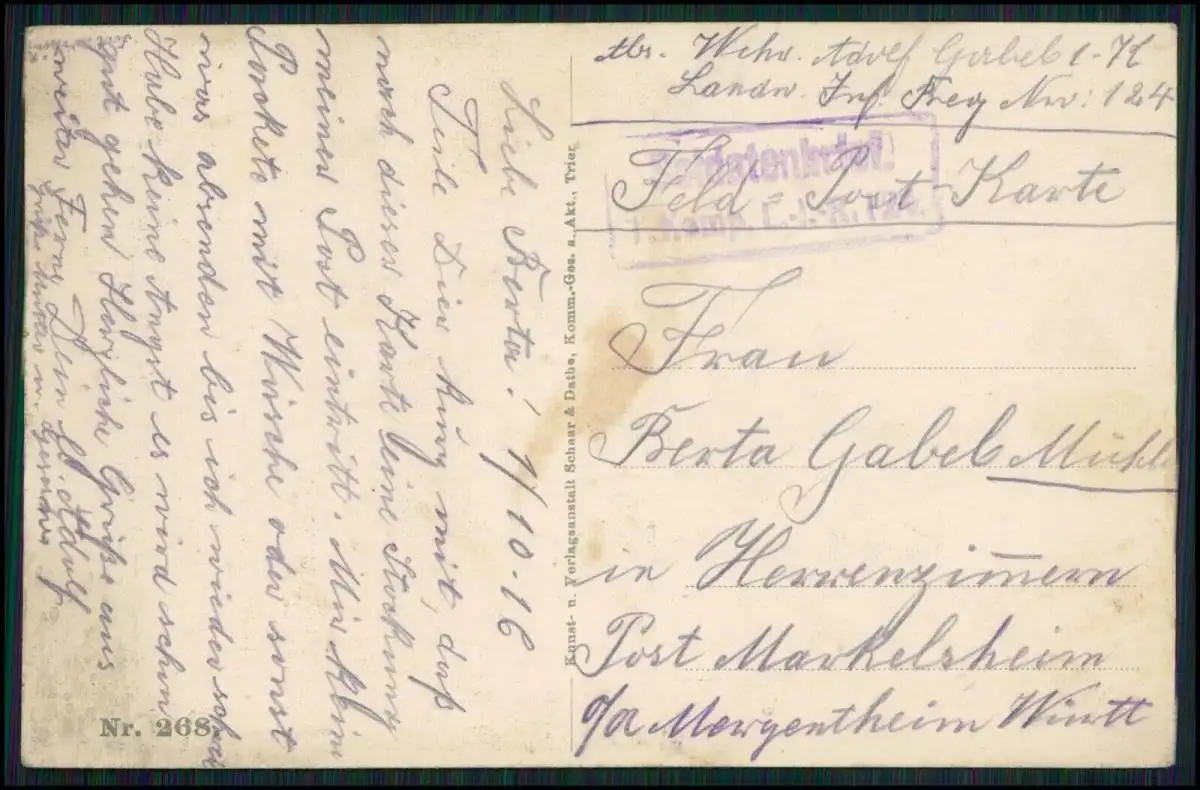 Abs. Wehr. Adolf Gabel 1-K
Landw. Inf. Reg Nr: 124
Soldatenbrief.
Feld = Post-Karte
1. Komp. L.-I.-R. 124.
Frau
Berta Gabel Mühle
in Herrenzimmern
Post Markelsheim
o/a Mergentheim Württ
Liebe Berta! 1/10-16
Teile Dier kurz mit, daß
noch dieser Karte eine Stockung
meiner Post eintritt. Mir kein
Packete mit Wäsche oder sonst
was absenden bis ich wieder schreibe
Habe keine Angst es wird schon
gut gehen Herzliche Grüße aus
weiter Ferne Dein lb. Adolf
Gruß Mutter u.
Kunst- u. Verlagsanstalt Schaar & Dathe, Komm.-Ges. a. Akt., Trier
Nr. 268.